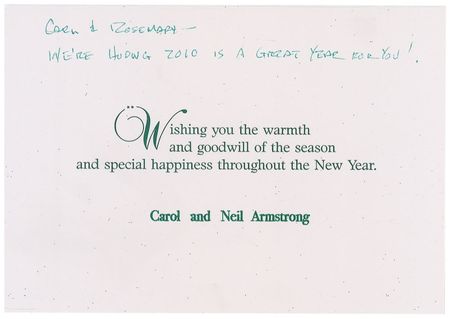 CARL & ROSEMARY —
WE'RE HOPING 2010 IS A GREAT YEAR FOR YOU!
Wishing you the warmth
and goodwill of the season
and special happiness throughout the New Year.
Carol and Neil Armstrong